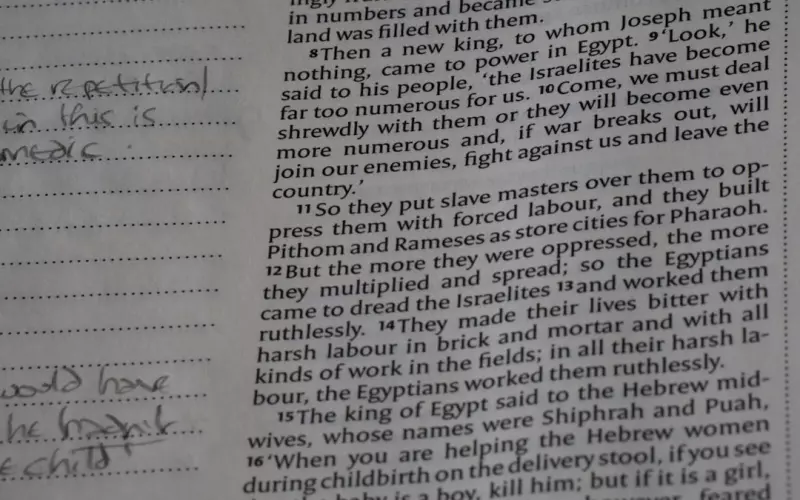 the repetition
in this is
would have
the
child
in numbers and became
land was filled with them.
8Then a new king, to whom Joseph meant
nothing, came to power in Egypt. 9‘Look,’ he
said to his people, ‘the Israelites have become
far too numerous for us. 10Come, we must deal
shrewdly with them or they will become even
more numerous and, if war breaks out, will
join our enemies, fight against us and leave the
country.’
11So they put slave masters over them to op-
press them with forced labour, and they built
Pithom and Rameses as store cities for Pharaoh.
12But the more they were oppressed, the more
they multiplied and spread; so the Egyptians
came to dread the Israelites 13and worked them
ruthlessly. 14They made their lives bitter with
harsh labour in brick and mortar and with all
kinds of work in the fields; in all their harsh la-
bour, the Egyptians worked them ruthlessly.
15The king of Egypt said to the Hebrew mid-
wives, whose names were Shiphrah and Puah,
16‘When you are helping the Hebrew women
during childbirth on the delivery stool, if you see
baby is a boy, kill him; but if it is a girl,
feared